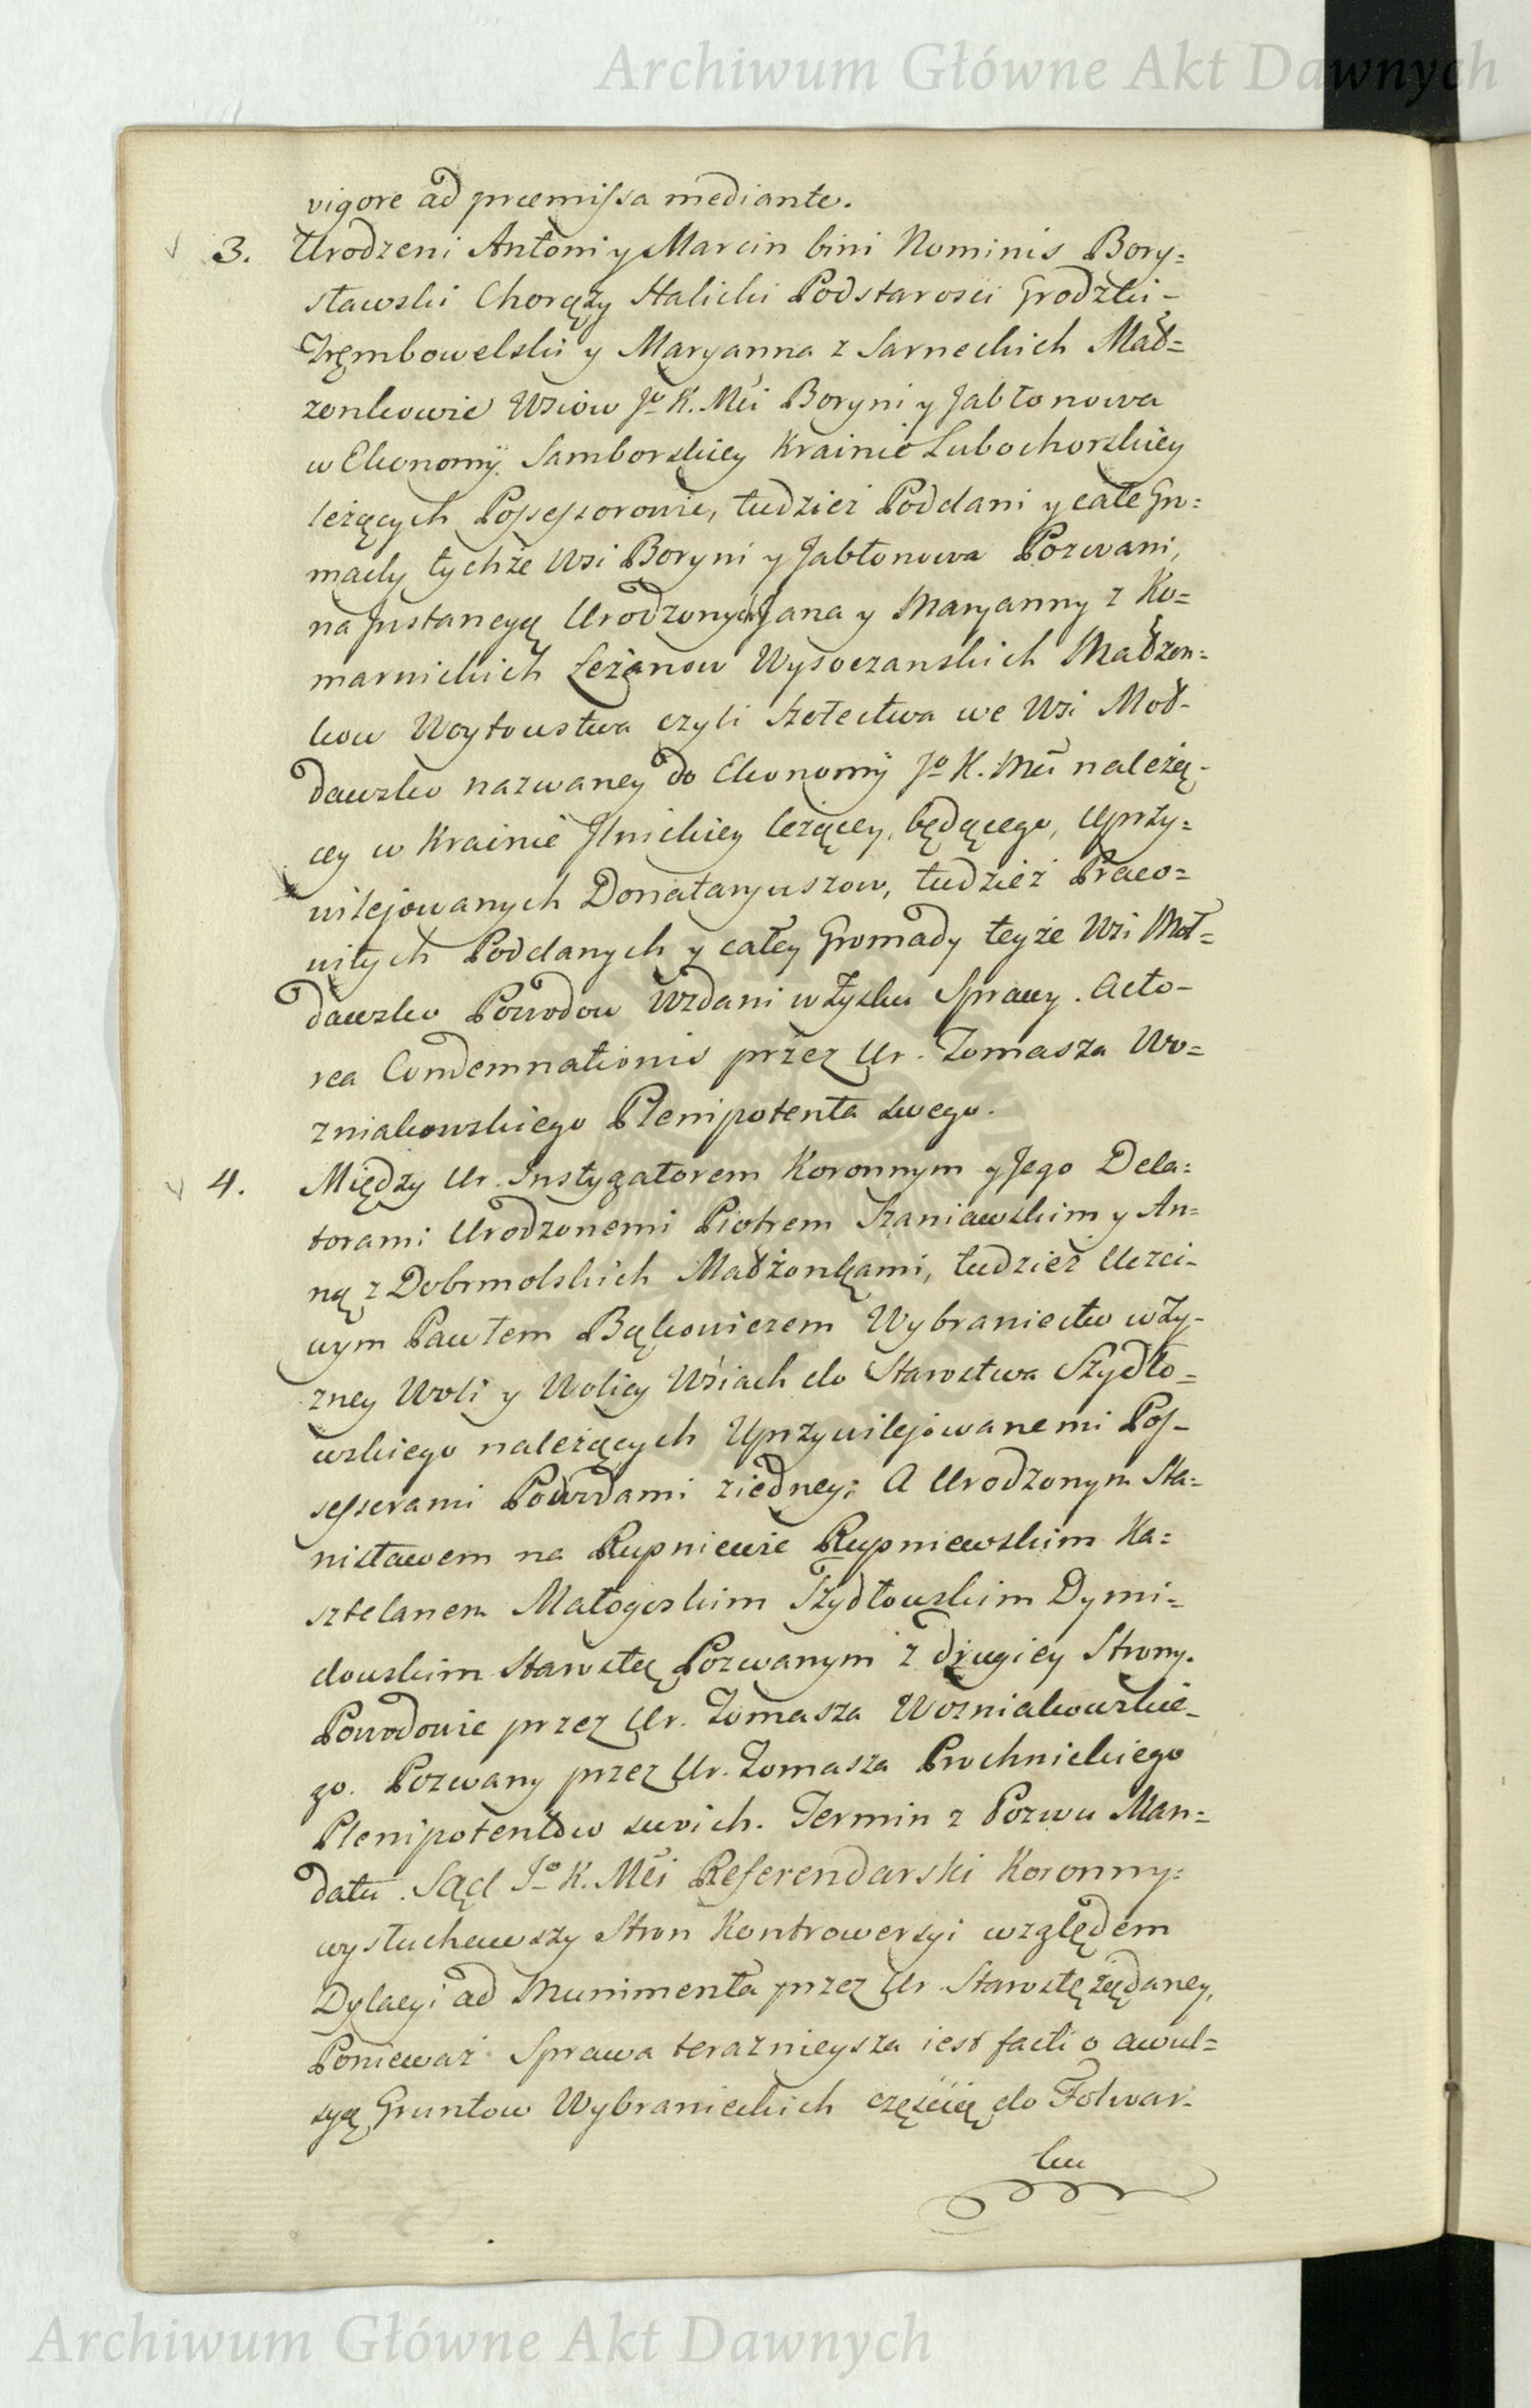 Archiwum Główne Akt Dawnych
vigore ad praemissa mediante.
3. Urodzeni Antoni y Marcin bini Nominis Bory=
sławski Chorąży Halicki Podstarości Grodzki
Trębowelski y Maryanna z Sarneckich Mał=
żonkowie Wsiow Jo K. Mci Boryni y Jabłonowa
w Ekonomÿ Samborskiey Krainie Lubochorskiey
leżących Possessorowie, tudzież Poddani y całe Gro=
mady tychże Wsi Boryni y Jabłonowa Pozwani,
na Instancyą Urodzonych Jana y Maryanny z Ko=
marnickich Leżanow Wysoczanskich Małżon=
kow Woytowstwa czyli Szołectwa we Wsi Moł=
dawsko nazwaney do Ekonomÿ Jo K. Mci należą=
cey w Krainie Ilnickiey leżącey, będącego, Uprzy=
wilejowanych Donataryuszow, tudzież Praco=
witych Poddanych y całey Gromady teyże Wsi Moł=
dawsko Powodow Wzdani w Zysku Sprawy. Acto=
rea Condemnationis przez Ur. Tomasza Wo=
zniakowskiego Plenipotenta swego.
4. Między Ur. Instygatorem Koronnym y Jego Dela=
torami Urodzonemi Piotrem Szaniawskim y An=
ną z Dobrmolskich Małżonkami, tudzież Uczci=
wym Pawłem Bąkowiczem Wybraniectw w Ży=
zney Woli y Wolicy Wsiach do Starostwa Szydło=
wskiego należących Uprzywilejowanemi Pos=
sessorami Powodami z iedney; A Urodzonym Sta=
nisławem na Rupniewie Rupniewskim Ka=
sztelanem Małogoskim Szydłowskim Dymi=
dowskim Starostą Pozwanym z drugiey Strony.
Powodowie przez Ur. Tomasza Wozniakowskie=
go. Pozwany przez Ur. Tomasza Prochnickiego
Plenipotentow swoich. Termin z Pozwu Man=
datu. Sąd Jo K. Mci Referendarski Koronny
wysłuchawszy Stron Kontrowersyi względem
Dylacyi ad Munimenta przez Ur. Starostę żądaney,
Ponieważ Sprawa teraznieysza iest facti o awul=
syą Gruntow Wybranieckich częścią do Folwar=
ku
Archiwum Główne Akt Dawnych